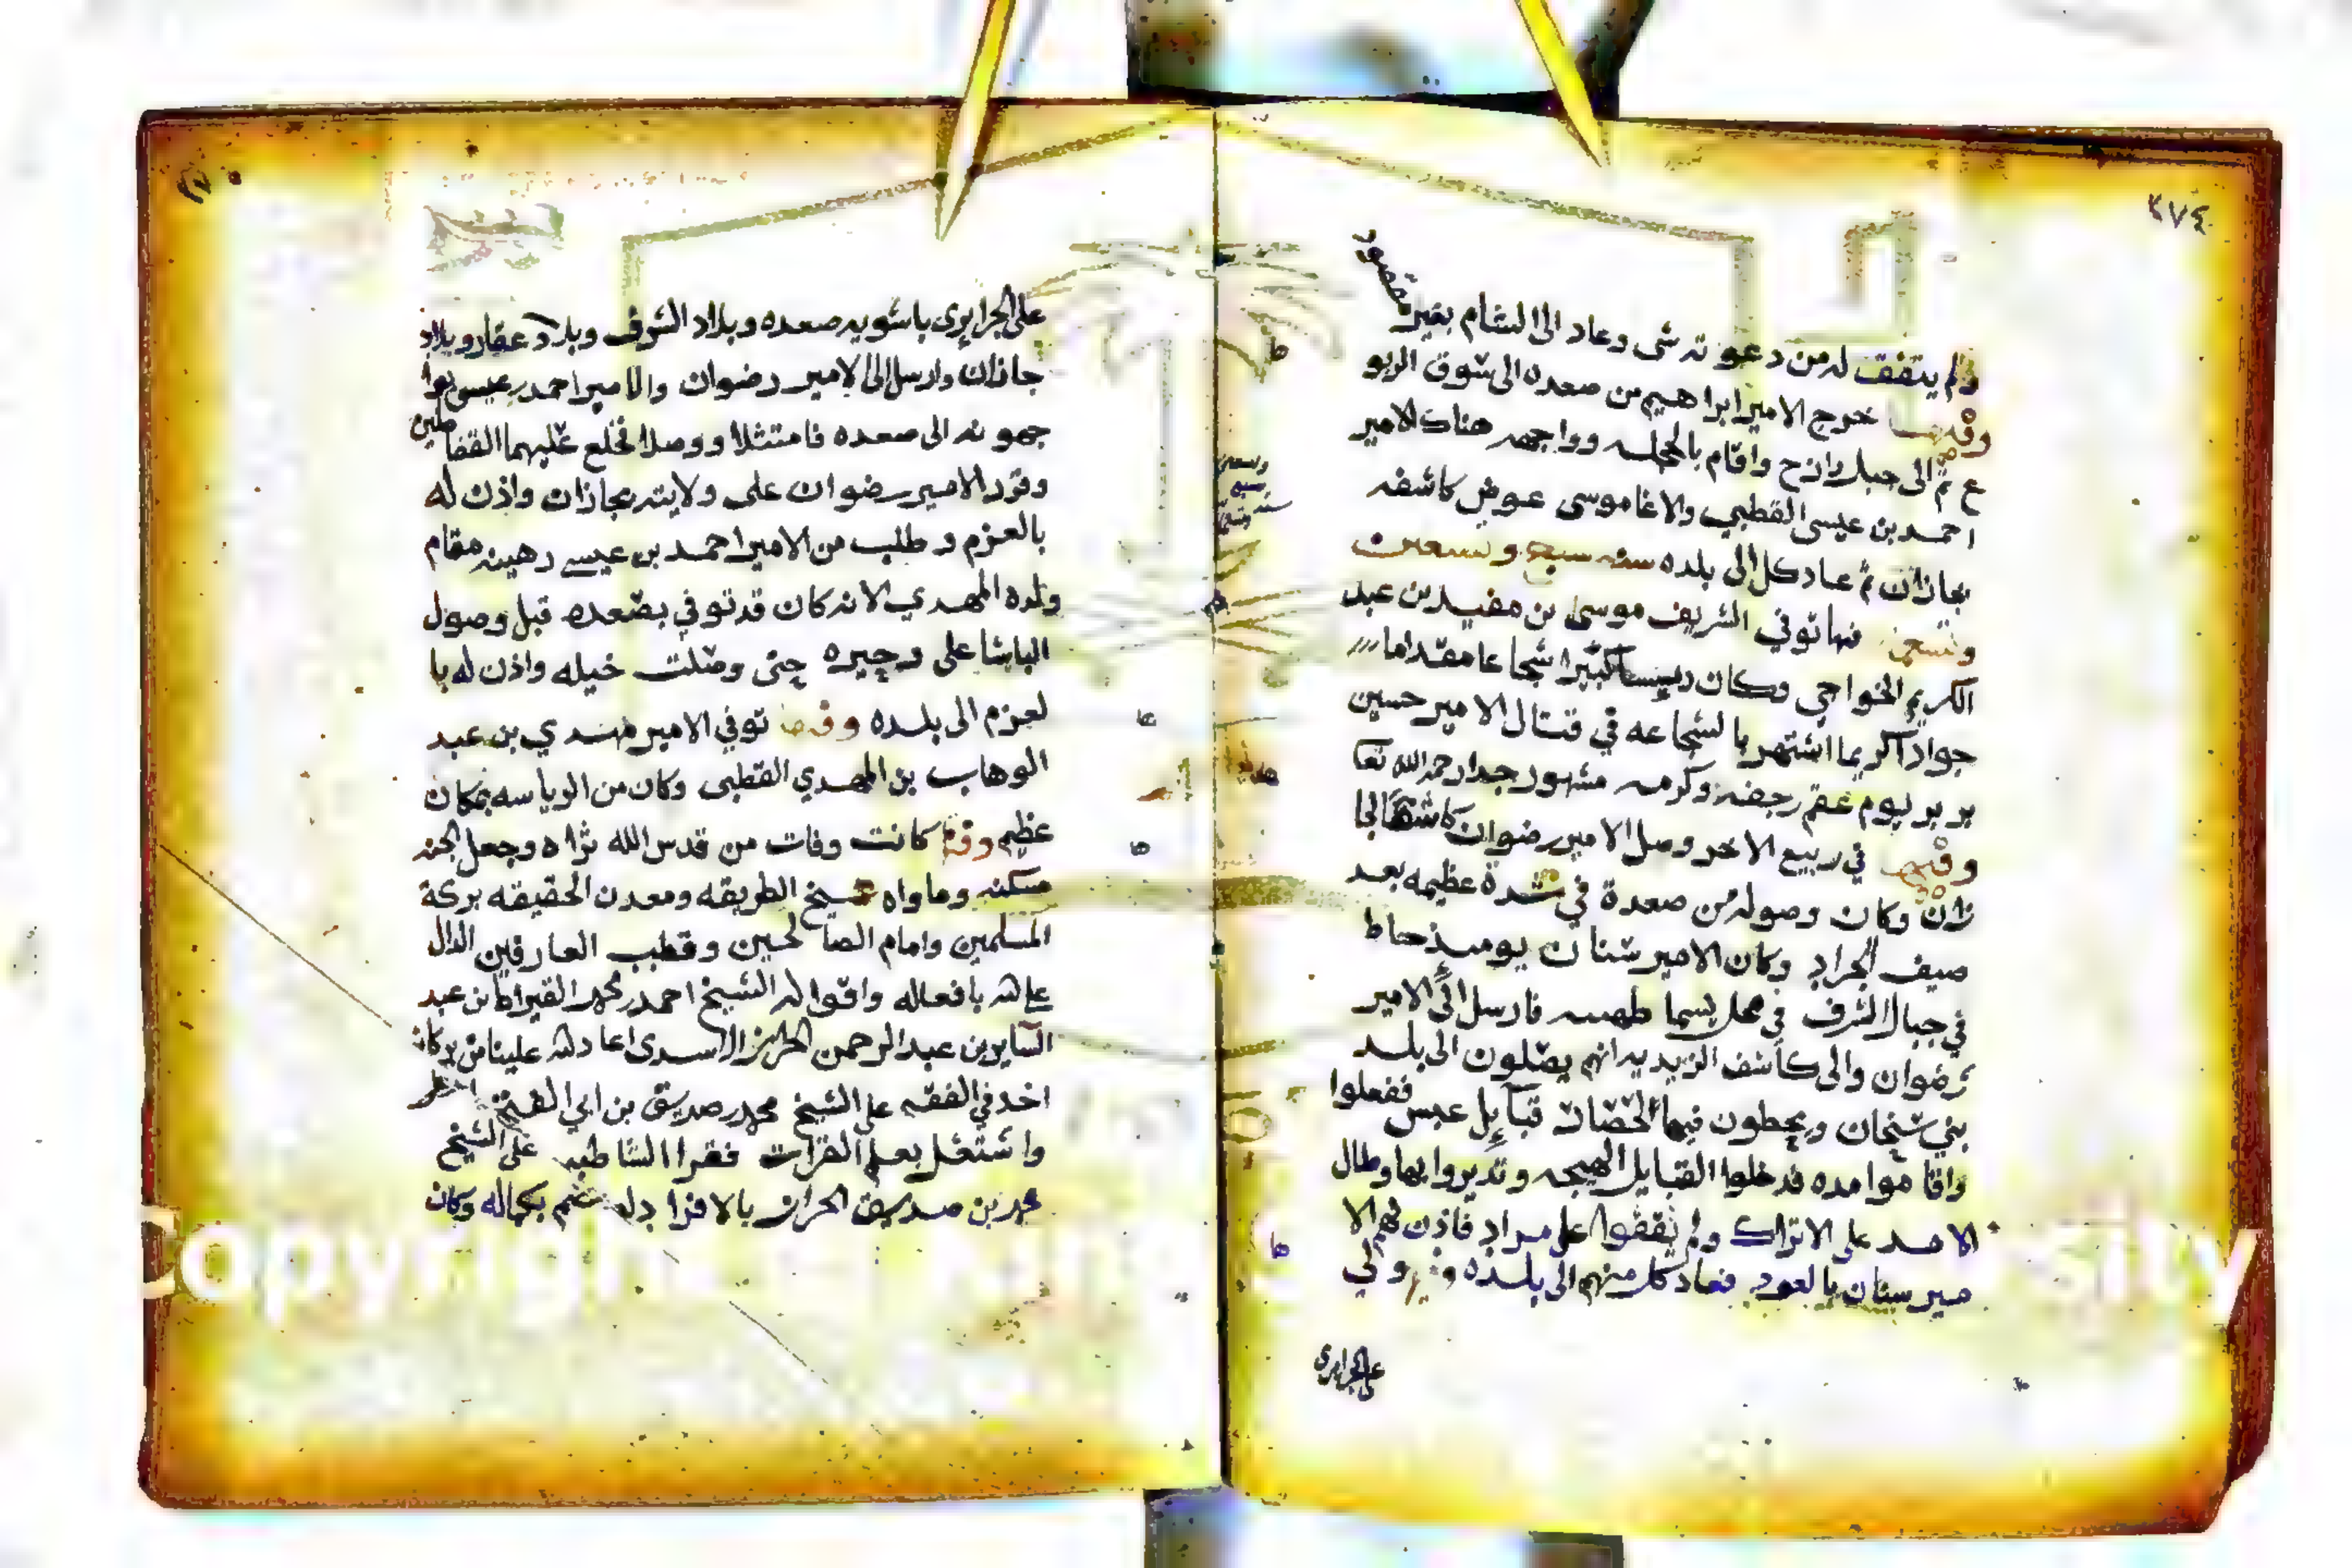 ٢٧٤
ولم يتفق له من دعوته شى وعاد الى الشام بغير مقصود
وفيها خرج الامير ابراهيم من صعده الى سوق الربو
ع ثم الى جبل رازح واقام بالمجلسه وواجهه هناك الامير
احمد بن عيسى القطبي والاغا موسى عوض كاشفه
بجازان ثم عاد كل الى بلده سنه سبع وتسعين
وتسعين فيها توفي الشريف موسى بن مفيد بن عبد
الكريم الخواجي وكان رييسا كبيرا شجاعا مقداما
جوادا كريما اشتهر بالشجاعه في قتال الامير حسين
بر بر يوم عقم رجفه وكرمه مشهور جدا رحمه الله تعا
وفيها في ربيع الاخر وصل الامير رضوان كاشفا لجا
زان وكان وصوله من صعدة في شدة عظيمه بعد
صيف الجراد وكان الامير سنان يوميذ حاط
في جبال الشرف في محل يسما فارسل الى الامير
رضوان والى كاشف الزيديه انهم يصلون الى بلد
بني شيخان ويحطون فيها لحضان قبايل عبس ففعلوا
واقاموا مده فدخلوا القبايل الهيجه وتديروا بها وطال
الامد على الاتراك ولم يقفوا على مراد فاذن لهم الا
مير سنان بالعود فعاد كل منهم الى بلده وفيها ولي
على الجزايري
على الجزايرى باشويه صعده وبلاد الشرف وبلاد عفار وبلاد
جازان وارسل الى الامير رضوان والامير احمد بن عيسى يوا
جهونه الى صعده فامتثلا ووصلا فخلع عليهما القفاطين
وقرر الامير رضوان على ولايته بجازان واذن له
بالعزم وطلب من الامير احمد بن عيسى رهينه مقام
ولده المهدي لانه كان قد توفي بصعده قبل وصول
الباشا على وجيره حتى وصلت خيله واذن له با
لعزم الى بلده وفيها توفي الامير مهدي بن عبد
الوهاب بن المهدي القطبى وكان من الرياسه بمكان
عظيم وفيها كانت وفات من قدس الله ثراه وجعل الجنه
مسكنه وماواه شيخ الطريقه ومعدن الحقيقه بركة
المسلمين وامام الصالحين وقطب العارفين الدال
على الله بافعاله واقواله الشيخ احمد بن محمد بن عبد
الساير بن عبد الرحمن الاسدى اعاد الله علينا من بركاته
اخد في الفقه على الشيخ محمد بن صديق بن ابي الفتح
واشتغل بعلم القرات فقرا الشاطبيه على الشيخ
محمد بن صديق بالافراد بكماله وكان